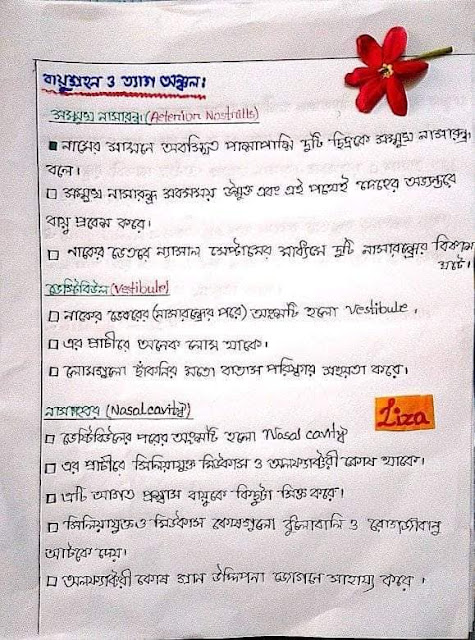 বায়ুগ্রহন ও ত্যাগ অঞ্চল:
সম্মুখ নাসারন্ধ্র (Aeterion Nostrills)
নাকের সামনে অবস্থিত পাশাপাশি দুটি ছিদ্রকে সম্মুখ নাসারন্ধ্র
বলে।
সম্মুখ নাসারন্ধ্র সবসময় উন্মুক্ত এবং এই পথেই দেহের অভ্যন্তরে
বায়ু প্রবেশ করে।
নাকের ভেতরে ন্যাসাল সেপ্টামের মাধ্যমে দুটি নাসারন্ধ্রের বিকাশ
ঘটে।
ভেস্টিবিউল (Vestibule)
নাকের ভেতরের (নাসারন্ধ্রের পরে) অংশটি হলো Vestibule.
এর প্রাচীরে অনেক লোম থাকে।
লোমগুলো ছাঁকনির মতো বাতাস পরিষ্কার সহায়তা করে।
নাসাগহ্বর (Nasal cavity)
Liza
ভেস্টিবিউলের পরের অংশটি হলো Nasal cavity
এর প্রাচীরে সিলিয়াযুক্ত মিউকাস ও অলফ্যাক্টরী কোষ থাকে।
এটি আগত প্রশ্বাস বায়ুকে কিছুটা সিক্ত করে।
সিলিয়াযুক্ত ও মিউকাস কোষগুলো ধুলোবালি ও রোগজীবানু
আটকে দেয়।
অলফ্যাক্টরী কোষ ঘ্রান উদ্দিপনা জোগাতে সাহায্য করে।